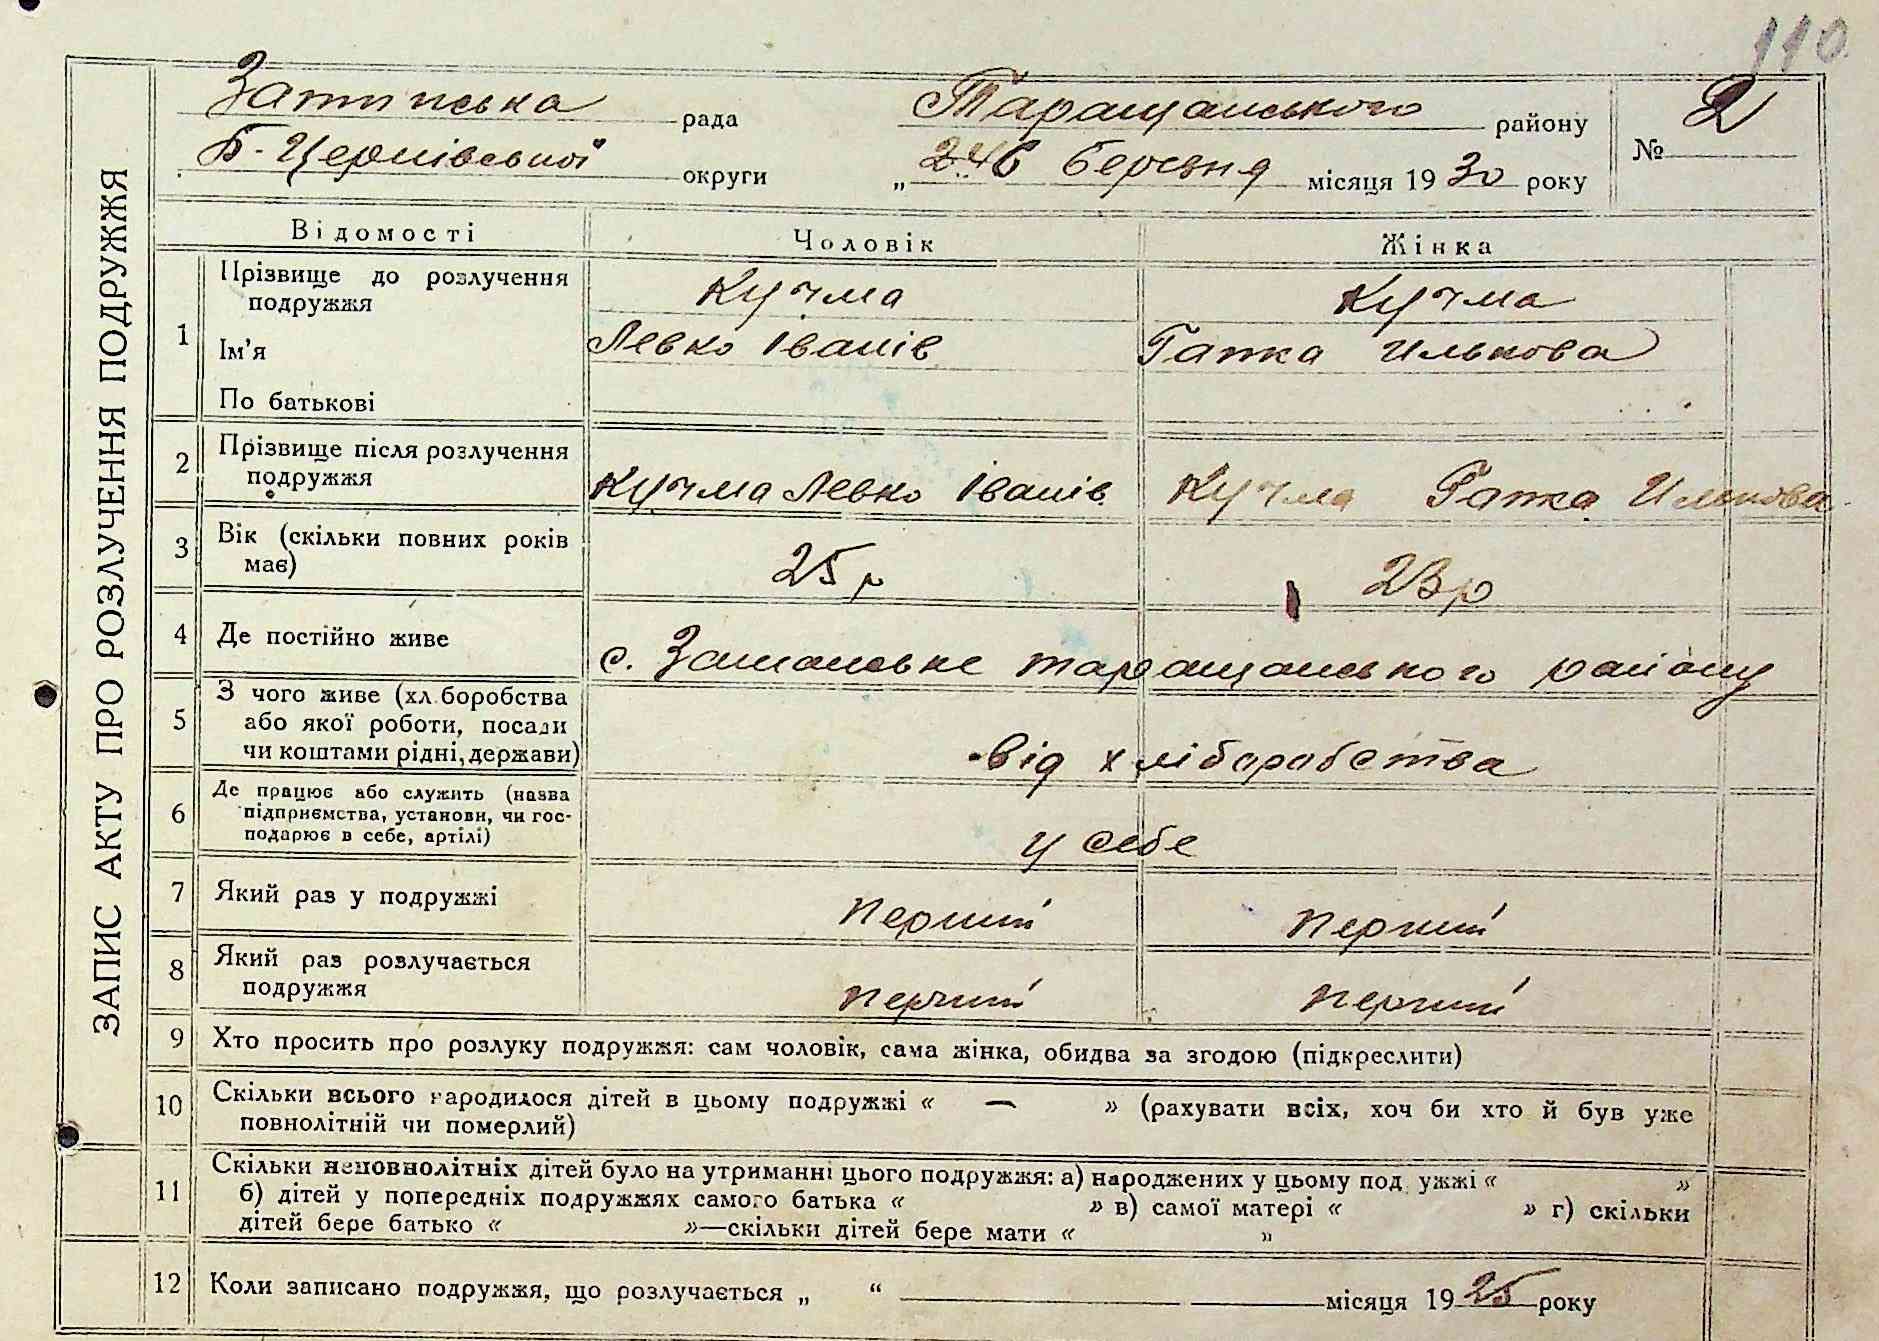 110.
ЗАПИС АКТУ ПРО РОЗЛУЧЕННЯ ПОДРУЖЖЯ
рада Таращанського району № 2
Б-Церківської округи „ березня місяця 1930 року
Відомості Чоловік Жінка
1 Прізвище до розлучення подружжя Кучма Кучма
Ім'я Левко Іванів Гапка Илькова
По батькові
2 Прізвище після розлучення
подружжя Кучма Левко Іванів Кучма Гапка Илькова
3 Вік (скільки повних років
має) 25 р 23 р
4 Де постійно живе с. таращанського району
5 З чого живе (хл.боробства
або якої роботи, посади
чи коштами рідні, держави) від хліборобства
6 Де працює або служить (назва
підприємства, установи, чи гос-
подарює в себе, артілі) у себе
7 Який раз у подружжі перший перший
8 Який раз розлучається
подружжя перший перший
9 Хто просить про розлуку подружжя: сам чоловік, сама жінка, обидва за згодою (підкреслити)
10 Скільки всього народилося дітей в цьому подружжі « — » (рахувати всіх, хоч би хто й був уже
повнолітній чи померлий)
11 Скільки неповнолітніх дітей було на утриманні цього подружжя: а) народжених у цьому под ужжі « »
б) дітей у попередніх подружжях самого батька « » в) самої матері « » г) скільки
дітей бере батько « »—скільки дітей бере мати « »
12 Коли записано подружжя, що розлучається „ “ місяця 1925 року